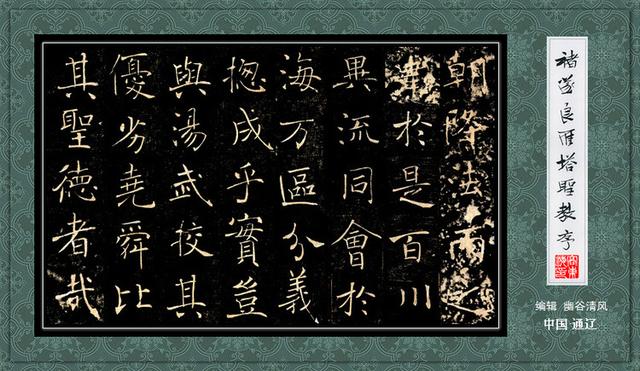 朝降法雨之
澤於是百川
異流同會於
海万區分義
揔成乎實豈
與湯武挍其
優劣堯舜比
其聖德者哉
褚遂良雁塔聖教序
编辑 幽谷清风
中国·通辽